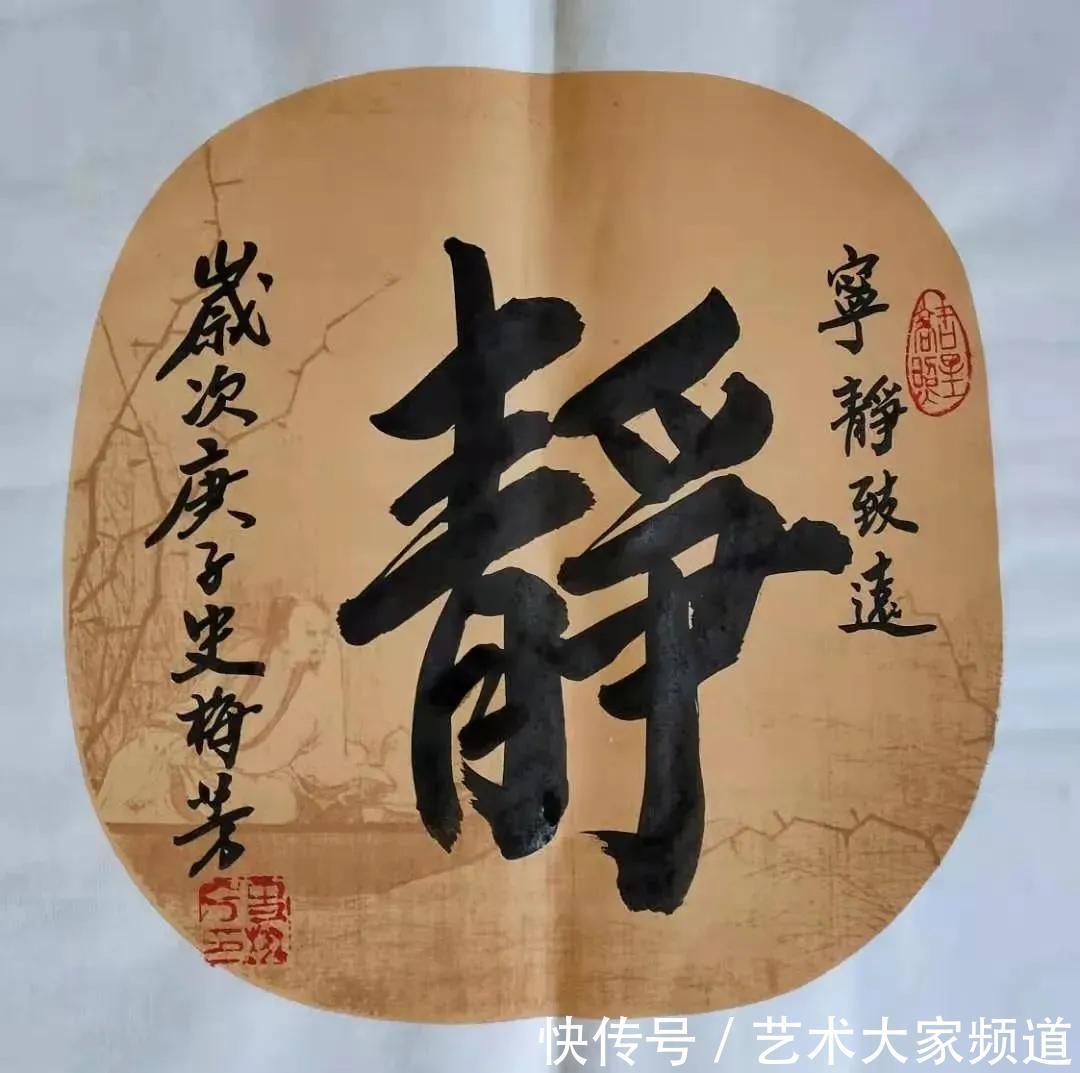 寧靜致遠
靜
歲次庚子史梅芳
快传号 / 艺术大家频道